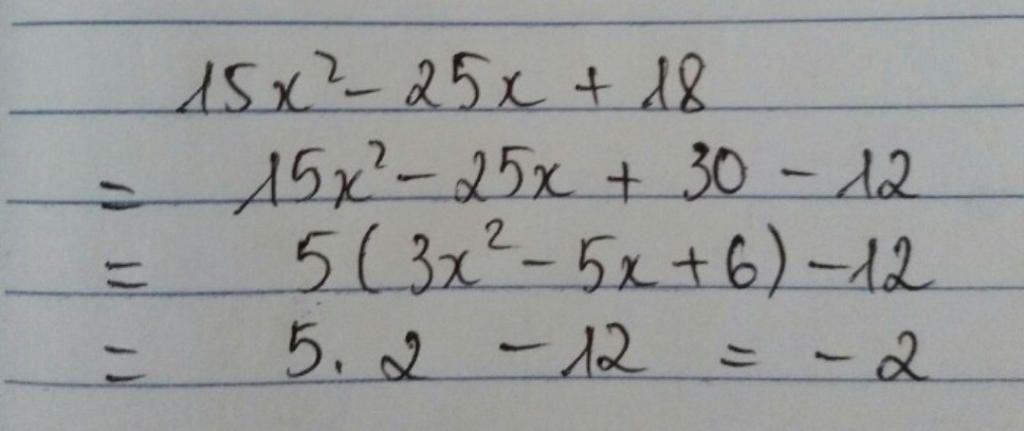 15x² - 25x + 18
= 15x² - 25x + 30 - 12
= 5(3x² - 5x + 6) - 12
= 5. 2 - 12 = - 2